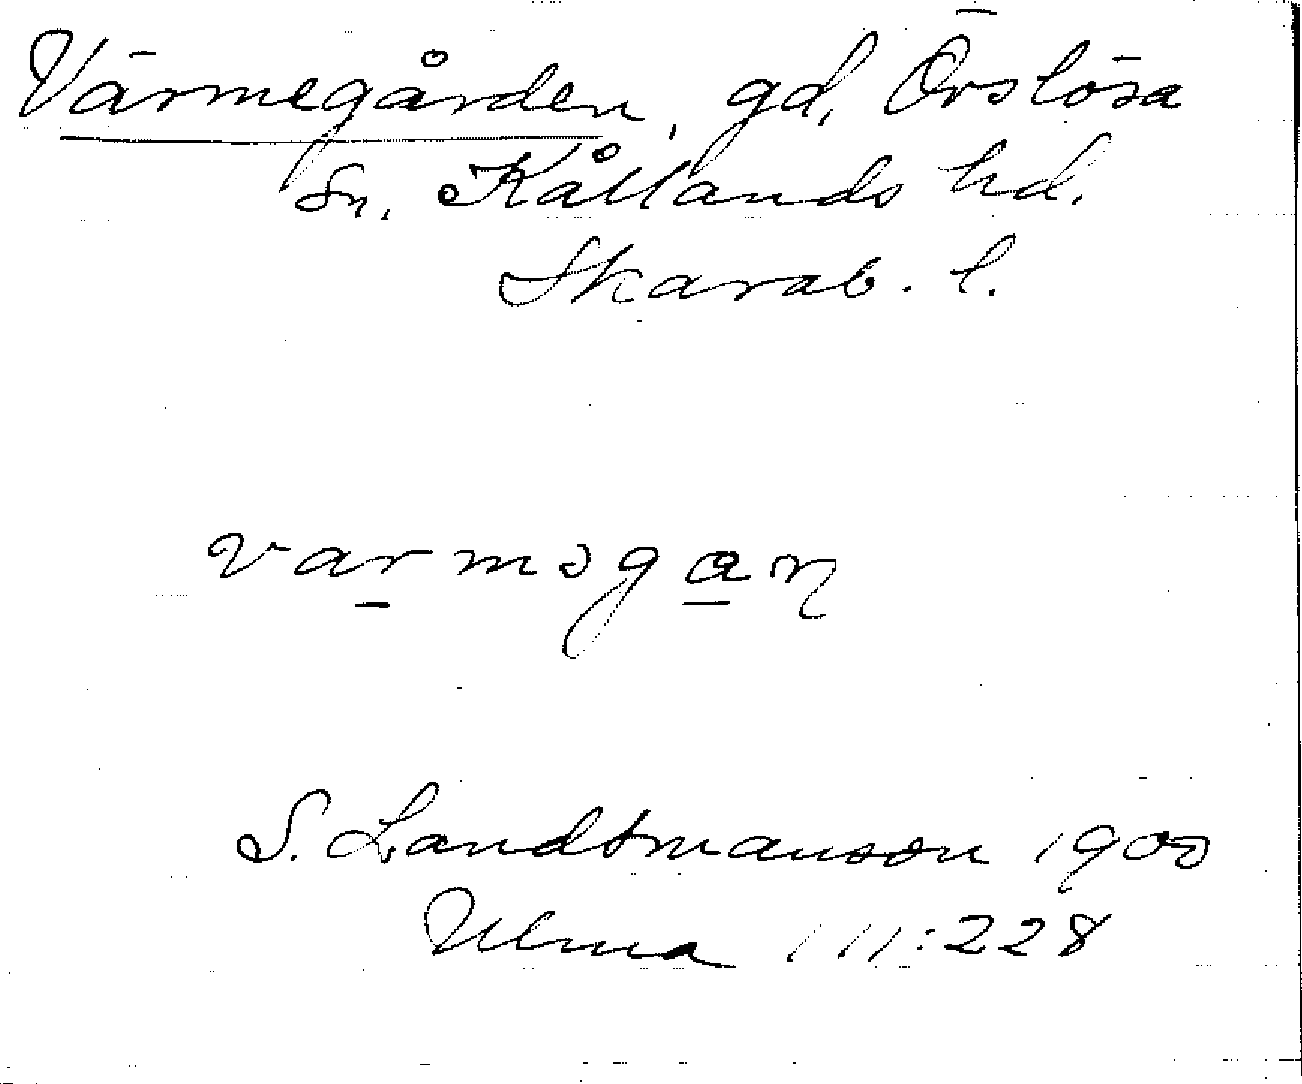 Värmegården, gd, Örslösa
sn. Kållands hd.
Skarab. l.
varməgaɳ
S. Landtmanson 1900
Ulma 111:228